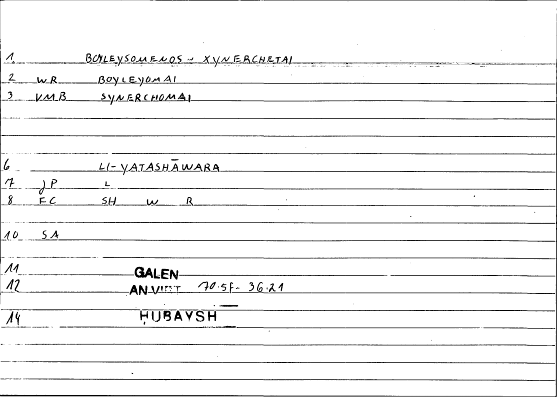 1 BOYLEYSOMENOS - XYNERCHETAI
2 WR BOYLEYOMAI
3 VMB SYNERCHOMAI
6 LI-YATASHĀWARA
7 JP L
8 FC SH W R
10 SA
11 GALEN
12 AN.VIRT 70.5F- 36.21
14 ḤUBAYSH